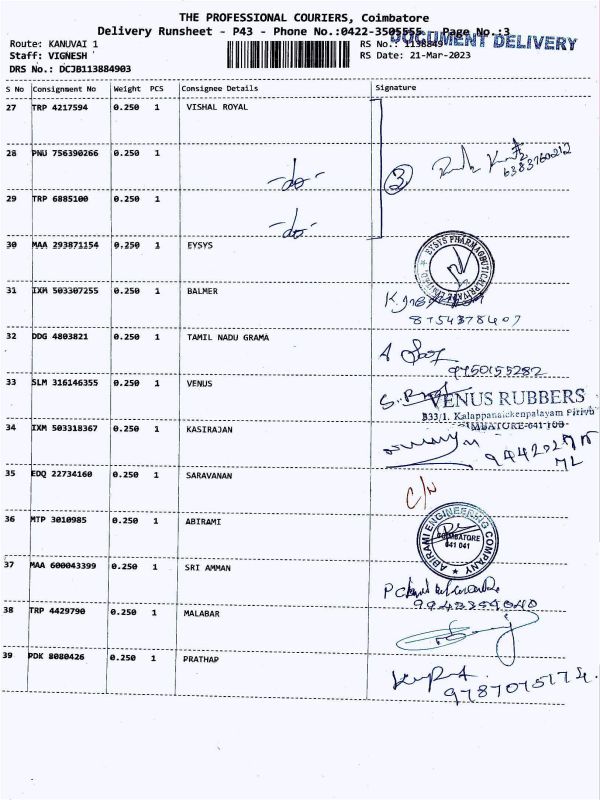 THE PROFESSIONAL COURIERS, Coimbatore
Delivery Runsheet - P43 - Phone No.:0422-3505555 Page No.:3
DOCUMENT DELIVERY
Route: KANUVAI 1
RS No.: 1138849
Staff: VIGNESH
RS Date: 21-Mar-2023
DRS No.: DCJB113884903
S No Consignment No Weight PCS Consignee Details Signature
27 TRP 4217594 0.250 1 VISHAL ROYAL
28 PNU 756390266 0.250 1 -do- 3
29 TRP 6885100 0.250 1 -do-
30 MAA 293871154 0.250 1 EYSYS
EYSYS PHARMACEUTICAL PRIVATE LIMITED
31 IXM 503307255 0.250 1 BALMER
8754378407
32 DDG 4803821 0.250 1 TAMIL NADU GRAMA
9750155282
33 SLM 316146355 0.250 1 VENUS
VENUS RUBBERS
333/1, Kalappanaickenpalayam Pirivu
34 IXM 503318367 0.250 1 KASIRAJAN
35 EDQ 22734160 0.250 1 SARAVANAN
36 MTP 3010985 0.250 1 ABIRAMI
ABIRAMI ENGINEERING COMPANY
COIMBATORE
641 041
37 MAA 600043399 0.250 1 SRI AMMAN
38 TRP 4429790 0.250 1 MALABAR
39 PDK 8080426 0.250 1 PRATHAP